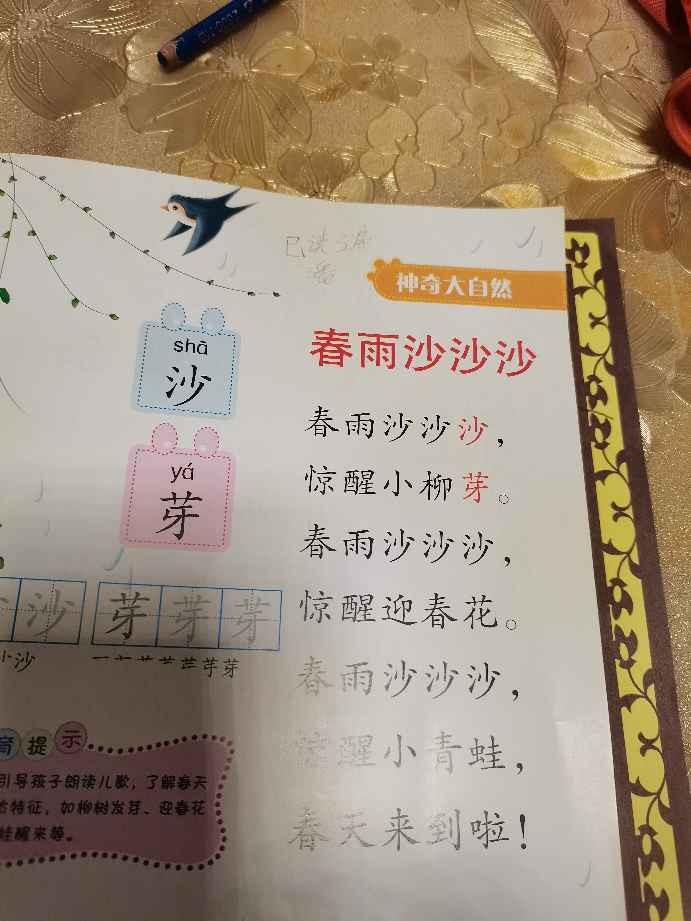 已读3扁
番
神奇大自然
春雨沙沙沙
shā
沙
yá
芽
春雨沙沙沙，
惊醒小柳芽。
春雨沙沙沙，
惊醒迎春花。
春雨沙沙沙，
惊醒小青蛙，
春天来到啦！
沙
芽芽芽
芽
育提示
引导孩子朗读儿歌，了解春天
特征，如柳树发芽、迎春花
蛙醒来等。